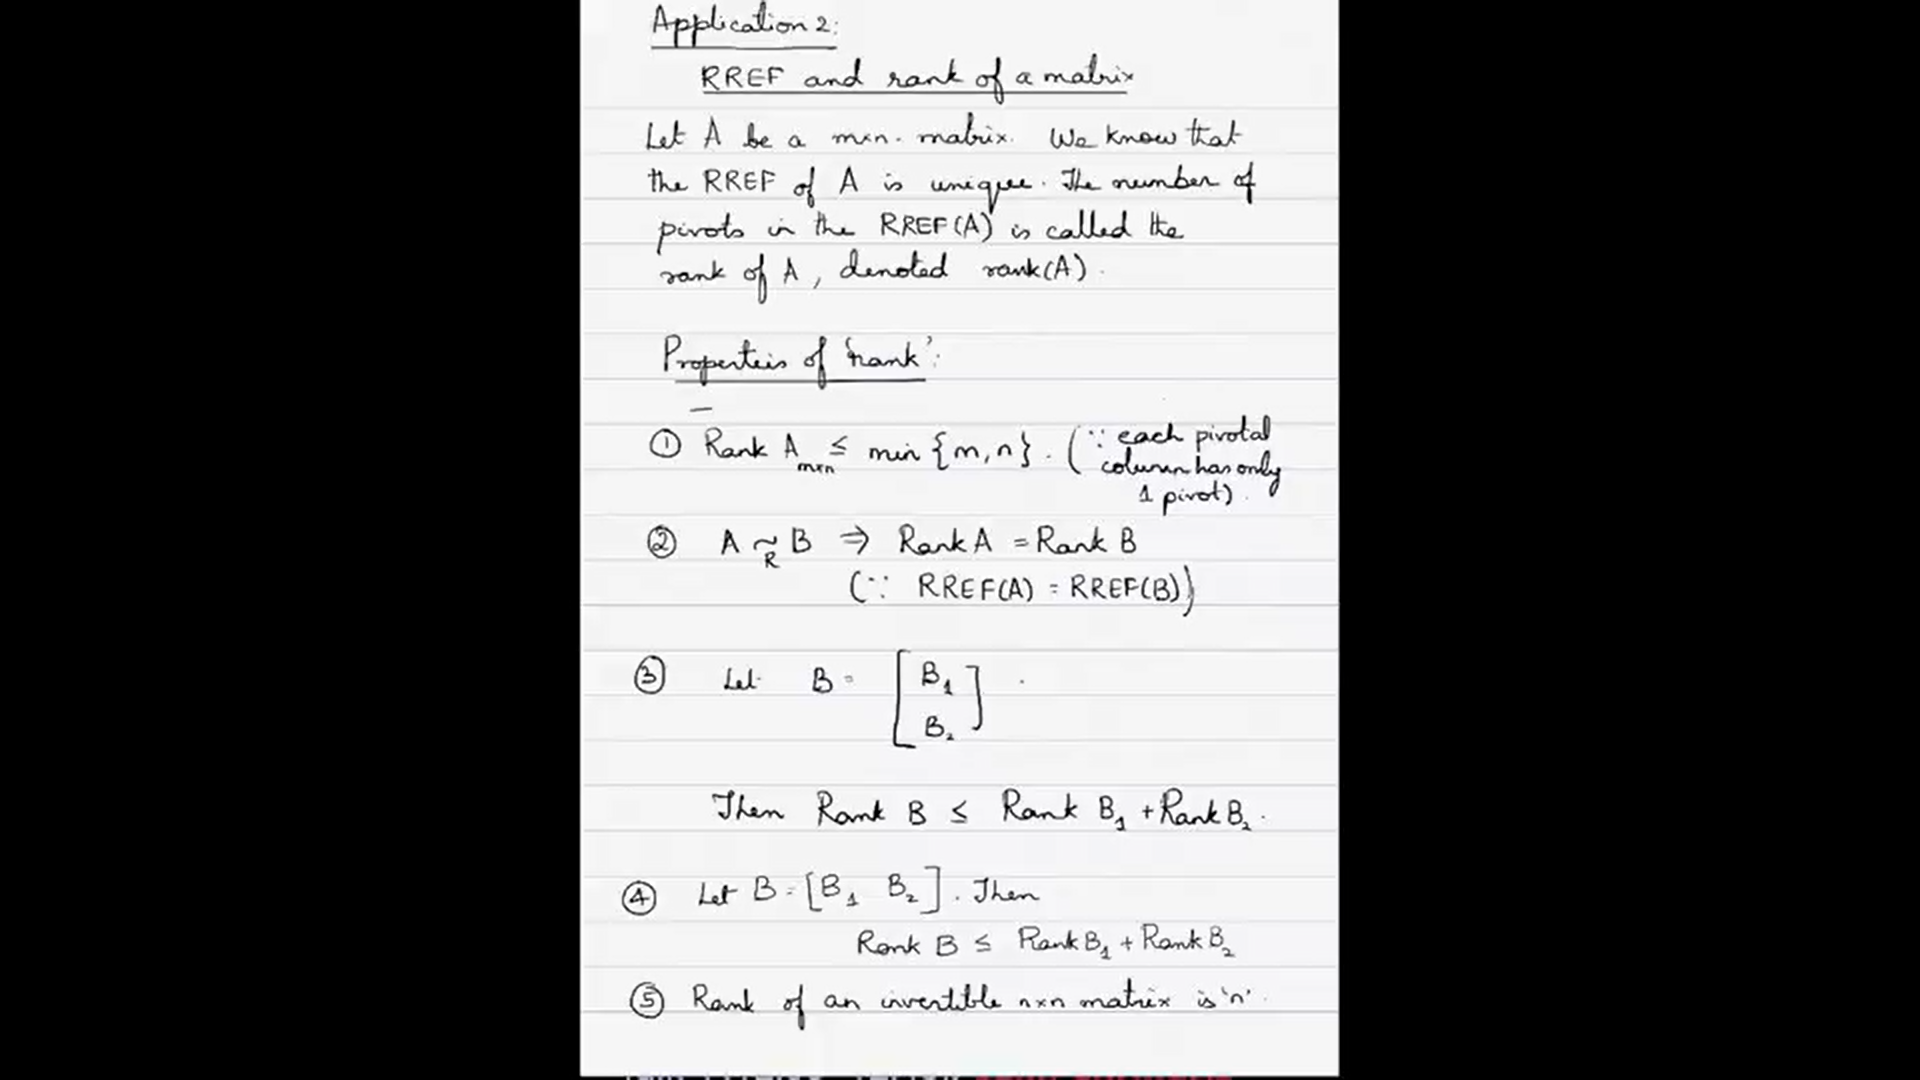 Application 2:
RREF and rank of a matrix
Let A be a m×n. matrix. We know that
the RREF of A is unique. The number of
pivots in the RREF(A) is called the
rank of A, denoted rank(A).
Properteis of 'rank':
① Rank A_{m×n} ≤ min {m, n}. (∵ each pivotal
column has only
1 pivot).
② A ~_R B ⇒ Rank A = Rank B
(∵ RREF(A) = RREF(B))
③ Let B = [B₁
B₂]
Then Rank B ≤ Rank B₁ + Rank B₂.
④ Let B = [B₁ B₂]. Then
Rank B ≤ Rank B₁ + Rank B₂
⑤ Rank of an invertible n×n matrix is 'n'.